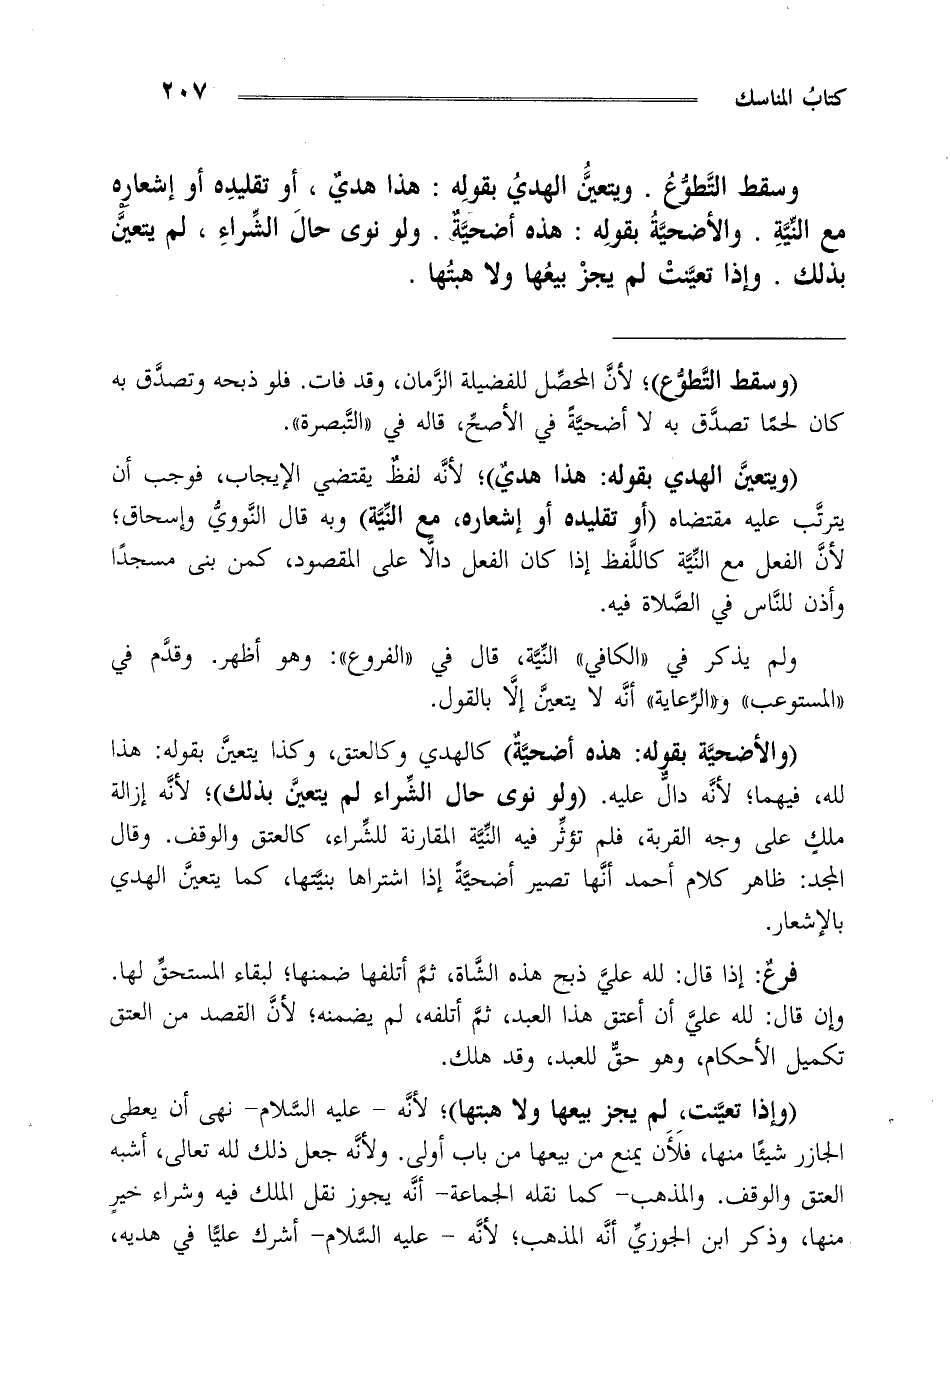 كتابُ المناسك ٢٠٧
وسقط التَّطوُّعُ . ويتعينَّ الهديُ بقولِه : هذا هديٌ ، أو تقليدِه أو إشعارِه
مع النِّيَّةِ . والأضحيَّةُ بقولِه : هذه أضحيَّةٌ . ولو نوى حالَ الشِّراءِ ، لم يتعينَّ
بذلك . وإذا تعيَّنتْ لم يجزْ بيعُها ولا هبتُها .
(وسقط التَّطوُّع)؛ لأنَّ المحصِّل للفضيلة الزَّمان، وقد فات. فلو ذبحه وتصدَّق به
كان لحمًا تصدَّق به لا أضحيَّةً في الأصحِّ، قاله في «التَّبصرة».
(ويتعينَّ الهدي بقوله: هذا هديٌ)؛ لأنَّه لفظٌ يقتضي الإيجاب، فوجب أن
يترتَّب عليه مقتضاه (أو تقليده أو إشعاره، مع النِّيَّة) وبه قال النَّوويُّ وإسحاق؛
لأنَّ الفعل مع النِّيَّة كاللَّفظ إذا كان الفعل دالًّا على المقصود، كمن بنى مسجدًا
وأذن للنَّاس في الصَّلاة فيه.
ولم يذكر في «الكافي» النِّيَّة، قال في «الفروع»: وهو أظهر. وقدَّم في
«المستوعب» و«الرِّعاية» أنَّه لا يتعينَّ إلَّا بالقول.
(والأضحيَّة بقوله: هذه أضحيَّةٌ) كالهدي وكالعتق، وكذا يتعينَّ بقوله: هذا
لله، فيهما؛ لأنَّه دالٌّ عليه. (ولو نوى حال الشِّراء لم يتعينَّ بذلك)؛ لأنَّه إزالة
ملكٍ على وجه القربة، فلم تؤثِّر فيه النِّيَّة المقارنة للشِّراء، كالعتق والوقف. وقال
المجد: ظاهر كلام أحمد أنَّها تصير أضحيَّةً إذا اشتراها بنيَّتها، كما يتعينَّ الهدي
بالإشعار.
فرعٌ: إذا قال: لله عليَّ ذبح هذه الشَّاة، ثمَّ أتلفها ضمنها؛ لبقاء المستحقِّ لها.
وإن قال: لله عليَّ أن أعتق هذا العبد، ثمَّ أتلفه، لم يضمنه؛ لأنَّ القصد من العتق
تكميل الأحكام، وهو حقٌّ للعبد، وقد هلك.
(وإذا تعيَّنت، لم يجز بيعها ولا هبتها)؛ لأنَّه - عليه السَّلام- نهى أن يعطى
الجازر شيئًا منها، فلَأَن يمنع من بيعها من باب أولى. ولأنَّه جعل ذلك لله تعالى، أشبه
العتق والوقف. والمذهب- كما نقله الجماعة- أنَّه يجوز نقل الملك فيه وشراء خيرٍ
منها، وذكر ابن الجوزيِّ أنَّه المذهب؛ لأنَّه - عليه السَّلام- أشرك عليًّا في هديه،